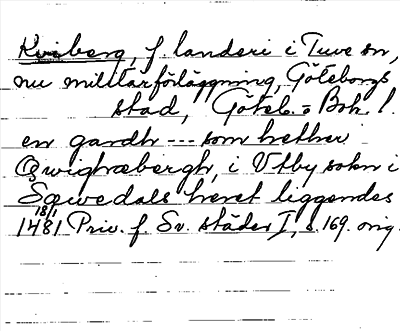 Kviberg, f. landeri i Tuve sn,
nu militärförläggning, Göteborgs
stad, Göteb. o Boh. l.
en gardh --- som hether
Qwighæbergh, i Utby sokn i
Sæwedals heret liggendes
18/1
1481 Priv. f. Sv. städer I, s. 169. orig.